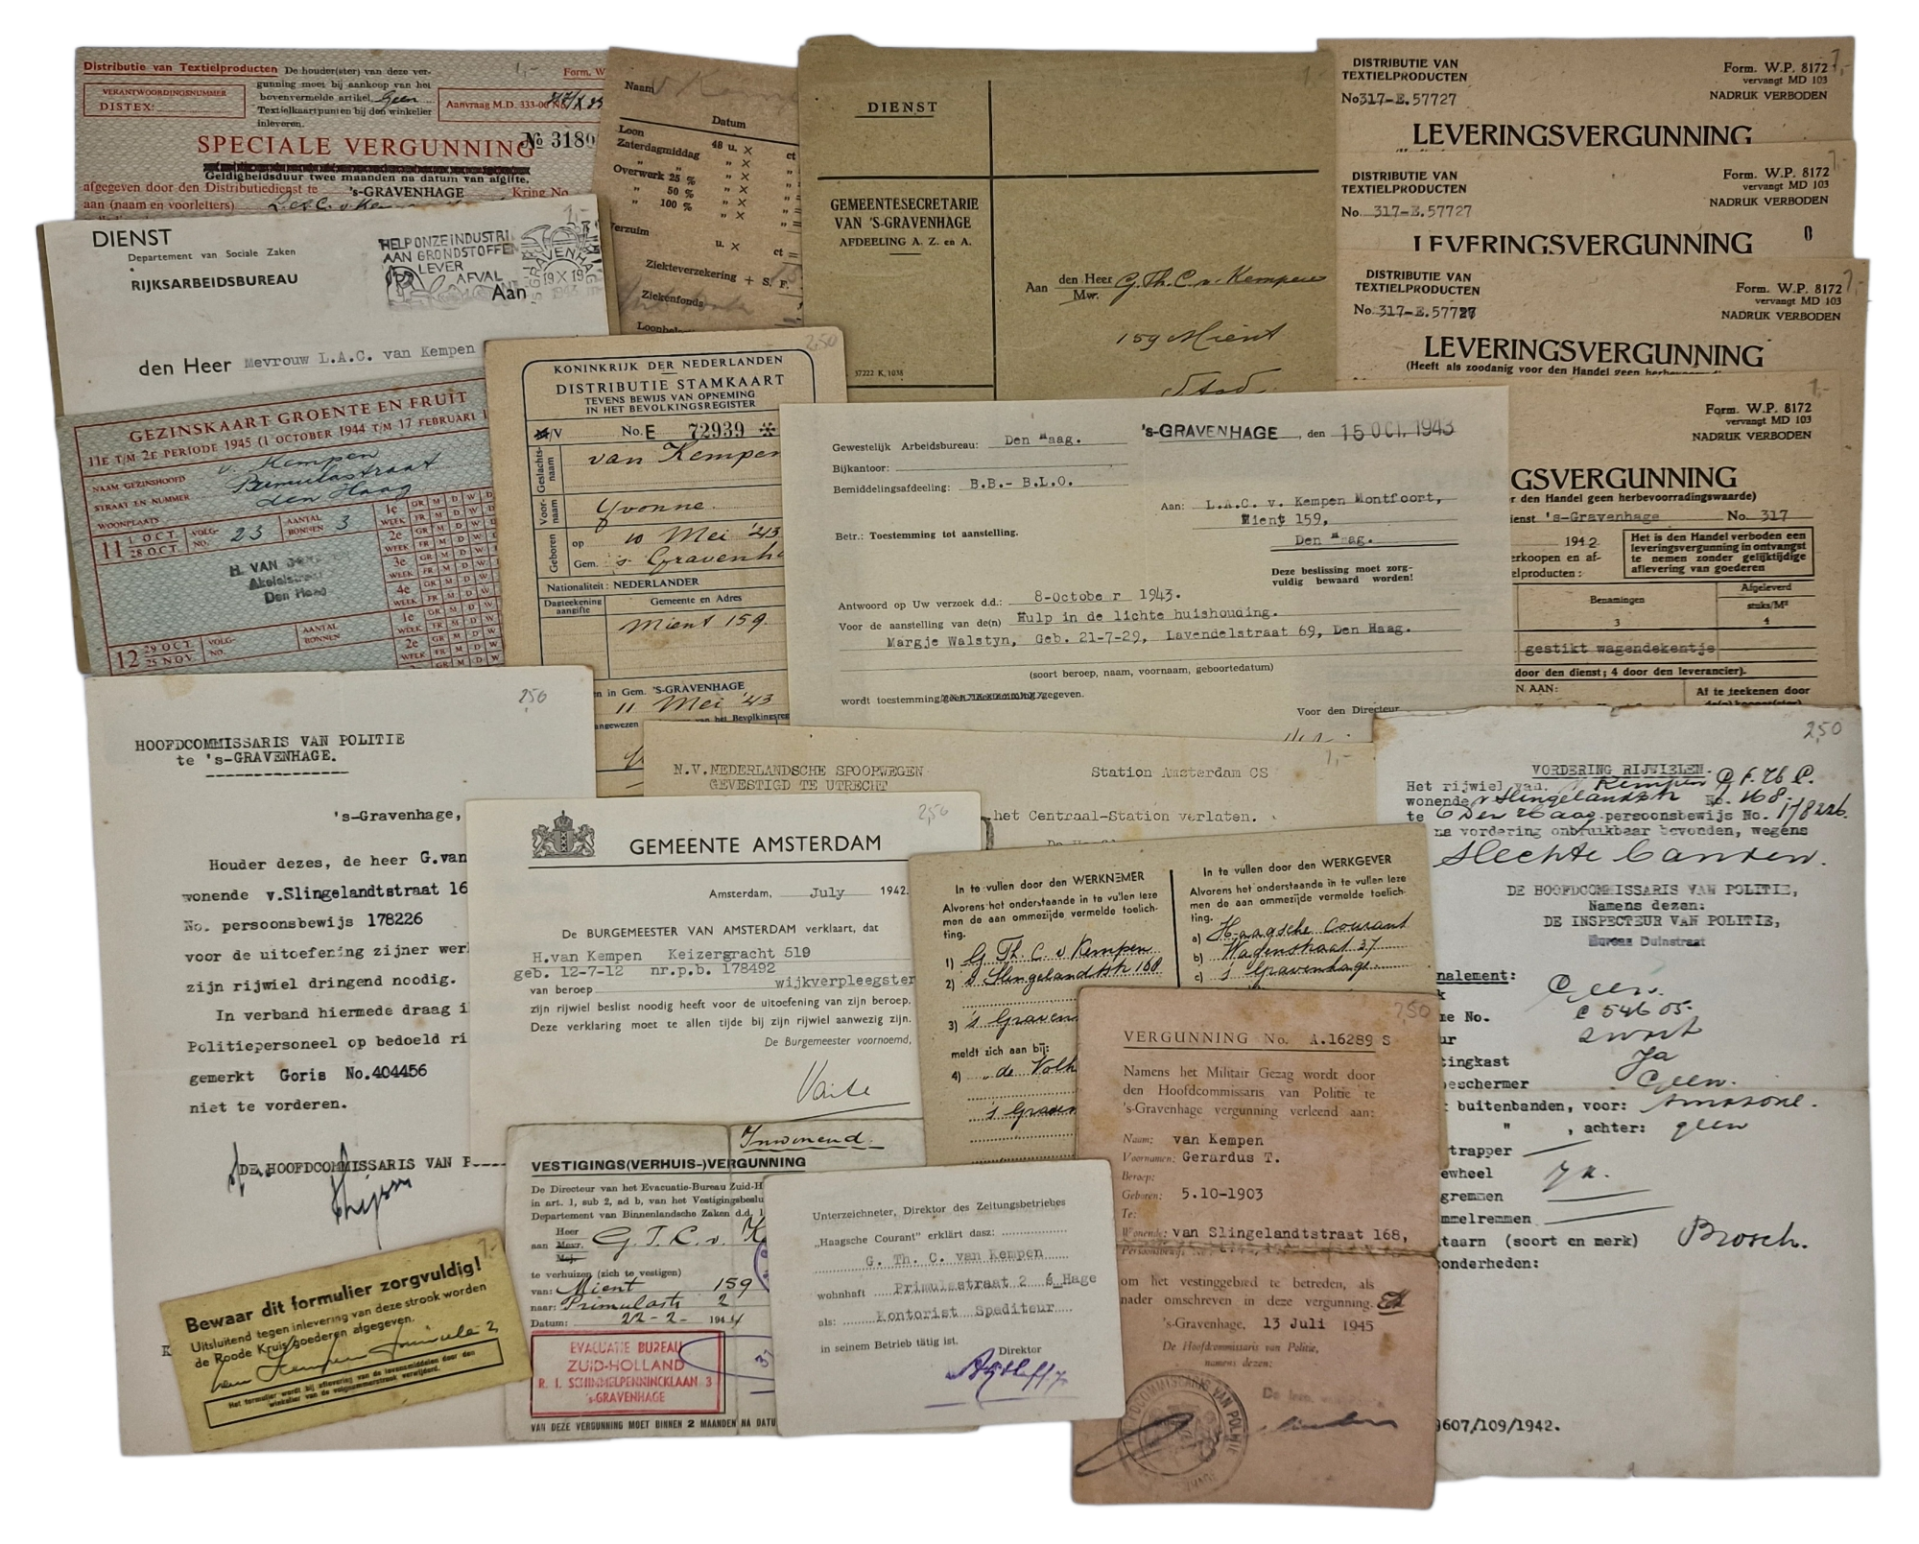 Distributie van Textielproducten
De houder(ster) van deze ver-
gunning moet bij aankoop van het
bovenvermelde artikel Geen
Textielkaartpunten bij den winkelier
inleveren.
1,-
Form. W
VERANTWOORDINGSNUMMER
DISTEX:
Aanvraag M.D. 333-00 No.
SPECIALE VERGUNNING
No 3180
Geldigheidsduur twee maanden na datum van afgifte.
afgegeven door den Distributiedienst te 's-GRAVENHAGE Kring No.
aan (naam en voorletters)
Naam v Kemp
Datum
Loon 48 u. × ct
Zaterdagmiddag " × "
" " × "
Overwerk 25 % " × "
" 50 % " × "
" 100 % " × "
Verzuim
u. × ct =
Ziekteverzekering + S. F.
Ziekenfonds
DIENST
1-
GEMEENTESECRETARIE
VAN 'S-GRAVENHAGE
AFDEELING A. Z. en A.
Aan den Heer G. Th. C. v. Kempen
Mw.
159 Mient
Stad.
37222 K. 1038
DISTRIBUTIE VAN
TEXTIELPRODUCTEN
No 317-E.57727
Form. W.P. 8172
vervangt MD 103
NADRUK VERBODEN
1,-
LEVERINGSVERGUNNING
DISTRIBUTIE VAN
TEXTIELPRODUCTEN
No. 317-E.57727
Form. W.P. 8172
vervangt MD 103
NADRUK VERBODEN
1,-
LEVERINGSVERGUNNING
DISTRIBUTIE VAN
TEXTIELPRODUCTEN
No. 317-E.57727
Form. W.P. 8172
vervangt MD 103
NADRUK VERBODEN
1,-
LEVERINGSVERGUNNING
(Heeft als zoodanig voor den Handel geen
1,-
Form. W.P. 8172
vervangt MD 103
NADRUK VERBODEN
GSVERGUNNING
r den Handel geen herbevoorradingswaarde)
ienst 's-Gravenhage No. 317
1942
erkoopen en af-
elproducten:
Het is den Handel verboden een
leveringsvergunning in ontvangst
te nemen zonder gelijktijdige
aflevering van goederen
Benamingen
3
Afgeleverd
stuks/M²
4
gestikt wagendekentje
door den dienst; 4 door den leverancier).
N AAN:
Af te teekenen door
DIENST
Departement van Sociale Zaken
RIJKSARBEIDSBUREAU
1,-
HELP ONZE INDUSTRI
AAN GRONDSTOFFE
LEVER
AFVAL
'S-GRAVENHAGE
19 X 19
1943
Aan
den Heer Mevrouw L.A.C. van Kempen
GEZINSKAART GROENTE EN FRUIT
11E T/M 2E PERIODE 1945 (1 OCTOBER 1944 T/M 17 FEBRUARI 1
NAAM GEZINSHOOFD v. Kempen
STRAAT EN NUMMER Primulastraat
WOONPLAATS den Haag
11 1 OCT.
28 OCT.
VOLG-
NO. 23
AANTAL
BONNEN 3
1e
WEEK
2e
WEEK
3e
WEEK
4e
WEEK
GR M D W D
FR M D W D
H. VAN
Den Haag
12 29 OCT.
25 NOV.
VOLG-
NO.
AANTAL
BONNEN
1e
WEEK
2e
WEEK
2,50
KONINKRIJK DER NEDERLANDEN
DISTRIBUTIE STAMKAART
TEVENS BEWIJS VAN OPNEMING
IN HET BEVOLKINGSREGISTER
M/V No. E 72939 *
Geslachts-
naam van Kempen
Voor-
naam Yvonne
Geboren op 10 Mei '43
Gem. 's Gravenh
Nationaliteit: NEDERLANDER
Dagteekening
aangifte
Gemeente en Adres
Mient 159
en in Gem. 'S-GRAVENHAGE
11 Mei '43
Gewestelijk Arbeidsbureau: Den Haag.
Bijkantoor:
Bemiddelingsafdeeling: B.B.- B.L.O.
's-GRAVENHAGE, den 15 OCT. 1943
Aan: L.A.C. v. Kempen Montfoort,
Mient 159,
Den Haag.
Betr.: Toestemming tot aanstelling.
Deze beslissing moet zorg-
vuldig bewaard worden!
Antwoord op Uw verzoek d.d.: 8-October 1943.
Voor de aanstelling van de(n) Hulp in de lichte huishouding.
Margje Walstyn, Geb. 21-7-29, Lavendelstraat 69, Den Haag.
(soort beroep, naam, voornaam, geboortedatum)
wordt toestemming gegeven.
Voor den Directeur
2,50
HOOFDCOMMISSARIS VAN POLITIE
te 's-GRAVENHAGE.
's-Gravenhage,
Houder dezes, de heer G.van
wonende v.Slingelandtstraat 16
No. persoonsbewijs 178226
voor de uitoefening zijner wer
zijn rijwiel dringend noodig.
In verband hiermede draag i
Politiepersoneel op bedoeld ri
gemerkt Goris No.404456
niet te vorderen.
DE HOOFDCOMMISSARIS VAN P
K
1,-
N.V. NEDERLANDSCHE SPOORWEGEN
GEVESTIGD TE UTRECHT
Station Amsterdam CS
het Centraal-Station verlaten.
2,50
GEMEENTE AMSTERDAM
Amsterdam, July 1942.
De BURGEMEESTER VAN AMSTERDAM verklaart, dat
H.van Kempen Keizergracht 519
geb. 12-7-12 nr.p.b. 178492
van beroep wijkverpleegster
zijn rijwiel beslist noodig heeft voor de uitoefening van zijn beroep.
Deze verklaring moet te allen tijde bij zijn rijwiel aanwezig zijn.
De Burgemeester voornoemd,
Voûte
In te vullen door den WERKNEMER
Alvorens het onderstaande in te vullen leze
men de aan ommezijde vermelde toelich-
ting.
1) G Th. C. v Kempen
2) v Slingelandtstr 168
3) 's Graven
meldt zich aan bij:
4) de Volk
's Graven
In te vullen door den WERKGEVER
Alvorens het onderstaande in te vullen leze
men de aan ommezijde vermelde toelich-
ting.
a) Haagsche Courant
b) Wagenstraat 37
c) 's Gravenhage
2,50
VORDERING RIJWIELEN.
Het rijwiel van v Kempen G. T. C.
wonende v Slingelandtstr No. 168.
te Den Haag persoonsbewijs No. 178226.
na vordering onbruikbaar bevonden, wegens
Slechte banden.
DE HOOFDCOMMISSARIS VAN POLITIE,
Namens dezen:
DE INSPECTEUR VAN POLITIE,
Bureau Duinstraat
nalement:
k Geen.
me No. C 546 05.
ur zwart
tingkast Ja
eschermer Geen.
t buitenbanden, voor: Amazone.
" , achter: geen
trapper
ewheel Ja.
gremmen
mmelremmen
taarn (soort en merk) Brosch.
onderheden:
9607/109/1942.
2,50
VERGUNNING No. A.16289 S
Namens het Militair Gezag wordt door
den Hoofdcommissaris van Politie te
's-Gravenhage vergunning verleend aan:
Naam: van Kempen
Voornamen: Gerardus T.
Beroep:
Geboren: 5.10-1903
Te:
Wonende: van Slingelandtstraat 168,
om het vestinggebied te betreden, als
nader omschreven in deze vergunning.
's-Gravenhage, 13 Juli 1945
De Hoofdcommissaris van Politie,
namens dezen:
HOOFDCOMMISSARIS VAN POLITIE
Inwonend.
VESTIGINGS(VERHUIS-)VERGUNNING
De Directeur van het Evacuatie-Bureau Zuid-H
in art. 1, sub 2, ad b, van het Vestigingsbeslu
Departement van Binnenlandsche Zaken d.d. 1
Heer
aan Mevr. G. T. C. v. K
Mej.
te verhuizen (zich te vestigen)
van: Mient 159
naar: Primulastr 2
Datum: 22-2- 1944
EVACUATIE BUREAU
ZUID-HOLLAND
R. J. SCHIMMELPENNINCKLAAN 3
's-GRAVENHAGE
VAN DEZE VERGUNNING MOET BINNEN 2 MAANDEN NA DATU
Unterzeichneter, Direktor des Zeitungsbetriebes
„Haagsche Courant" erklärt dasz:
G. Th. C. van Kempen
wohnhaft Primulastraat 2 's Hage
als: Kontorist Spediteur
in seinem Betrieb tätig ist.
Direktor
1,-
Bewaar dit formulier zorgvuldig!
Uitsluitend tegen inlevering van deze strook worden
de Roode Kruis goederen afgegeven.
van Kempen Primula 2
Het formulier wordt bij aflevering van de levensmiddelen door den
winkelier van de volgnummerstrook verwijderd.